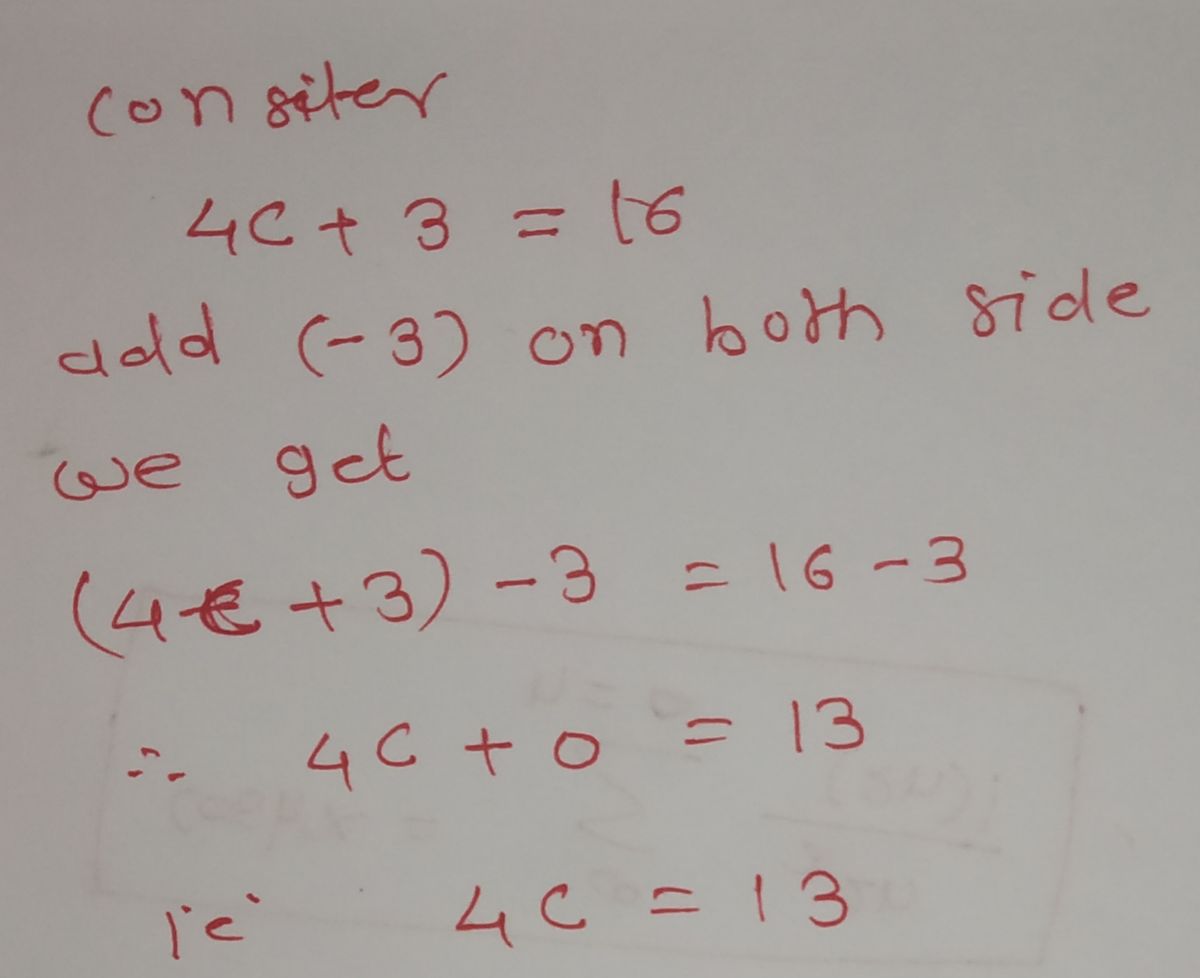 consiter
4C + 3 = 16
add (-3) on both side
we get
(4C + 3) - 3 = 16 - 3
∴ 4C + 0 = 13
ie 4C = 13